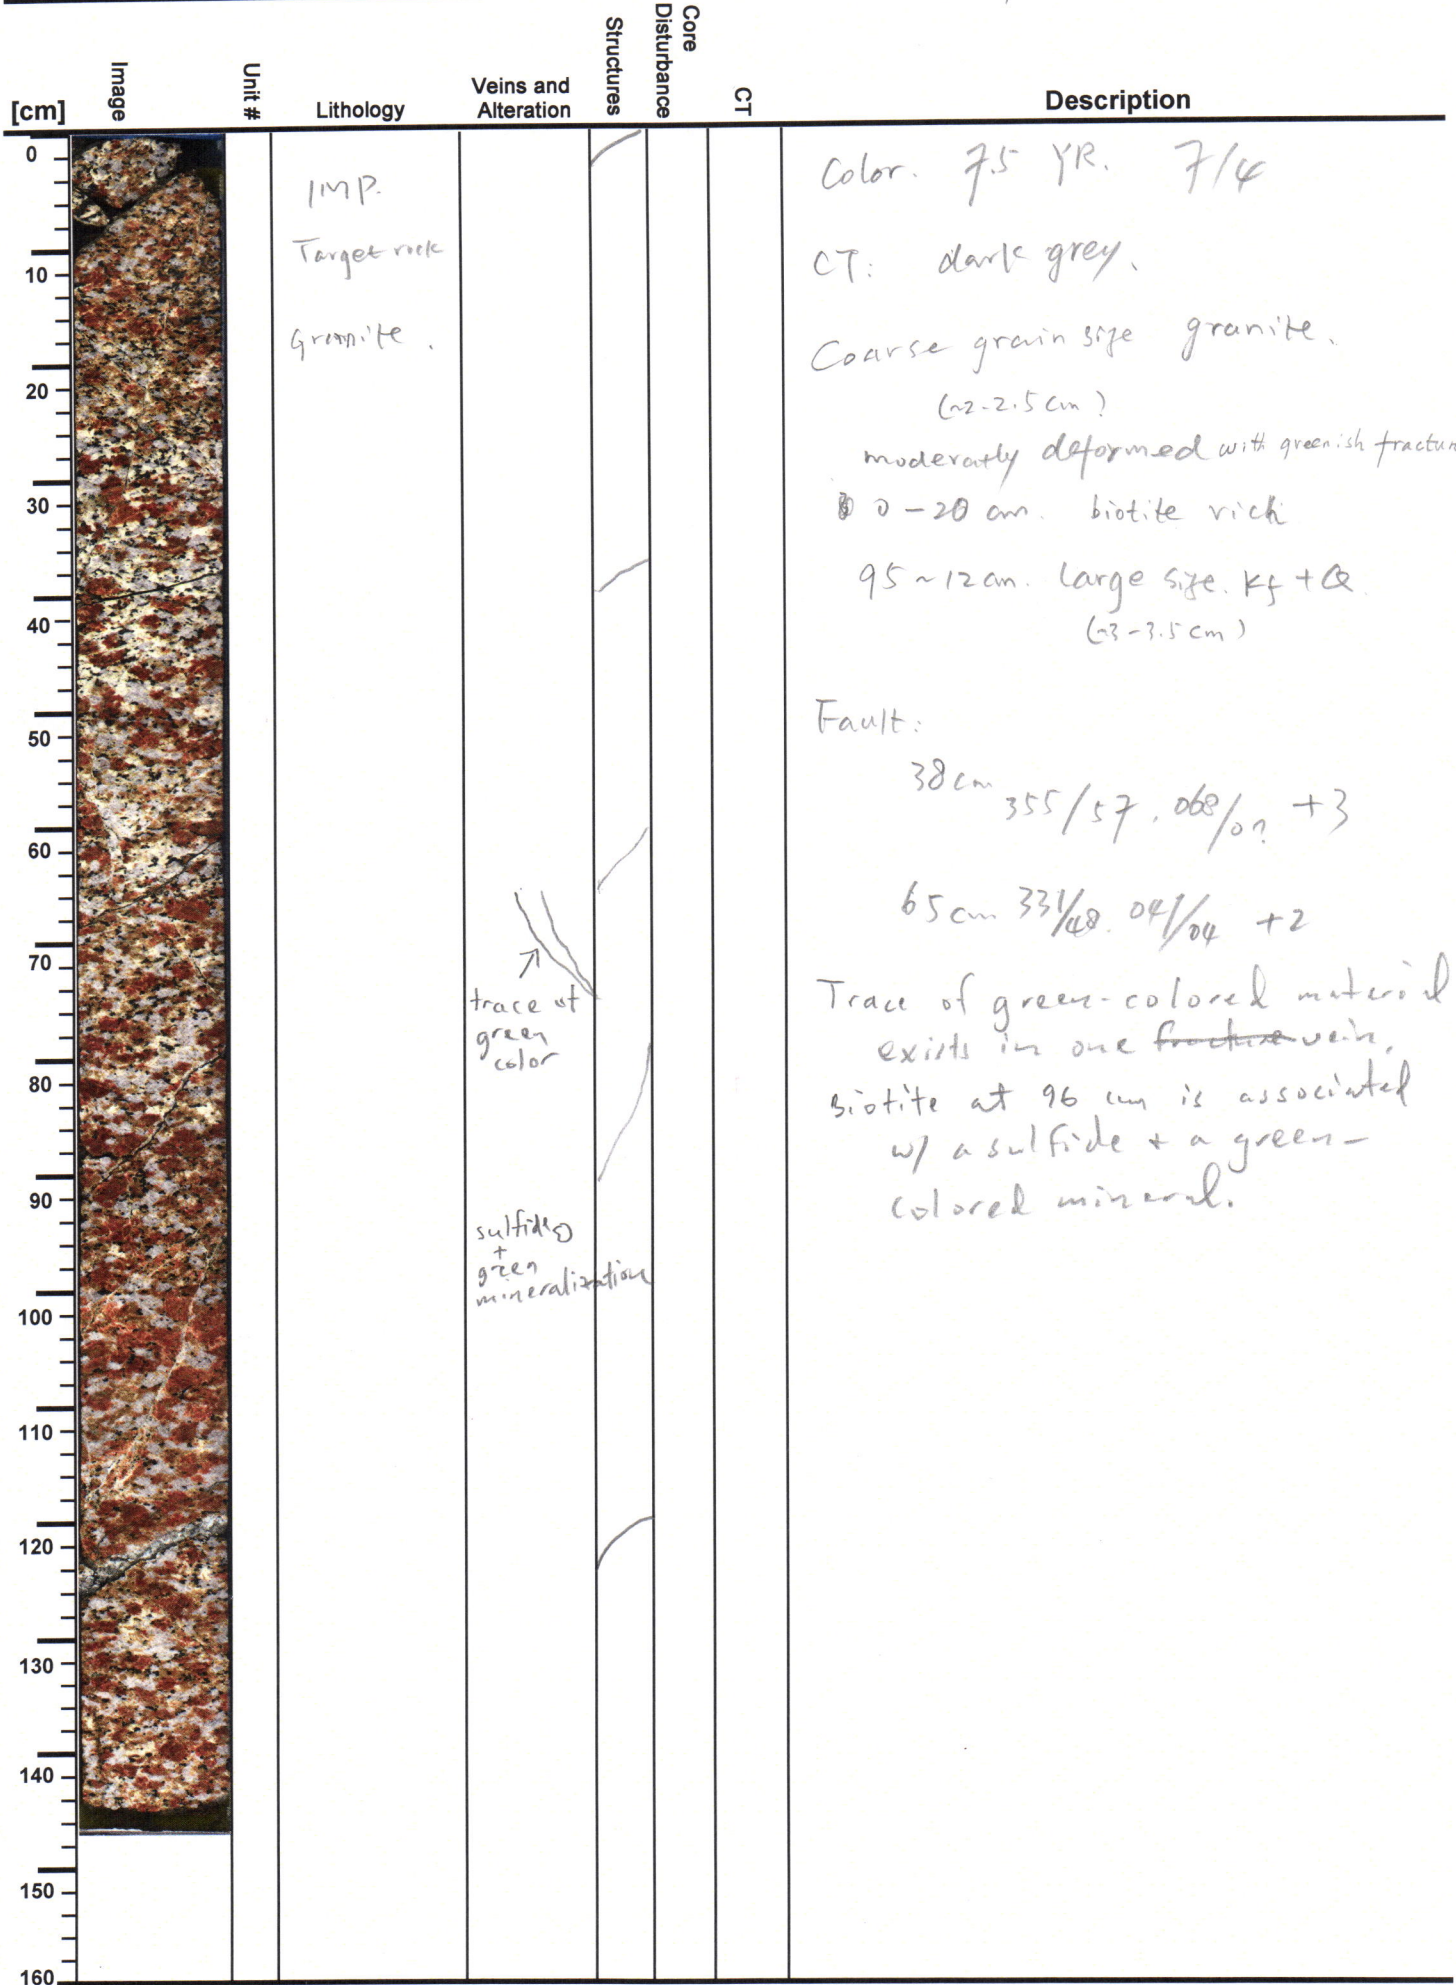 [cm]
Image
Unit #
Lithology
Veins and
Alteration
Structures
Core
Disturbance
CT
Description
0
10
20
30
40
50
60
70
80
90
100
110
120
130
140
150
160
IMP.
Target rock
Granite.
trace of
green
color
sulfide
+
green
mineralization
Color. 7.5 YR. 7/4
CT: dark grey.
Coarse grain size granite.
(~2-2.5 cm)
moderatly deformed with greenish fractur
0-20 cm. biotite rich
95~12 cm. large size. Kf + Q.
(~3-3.5 cm)
Fault:
38 cm 355/57. 068/0? +3
65 cm 331/48. 041/04 +2
Trace of green-colored material
exists in one fracture vein.
Biotite at 96 cm is associated
w/ a sulfide + a green-
colored mineral.